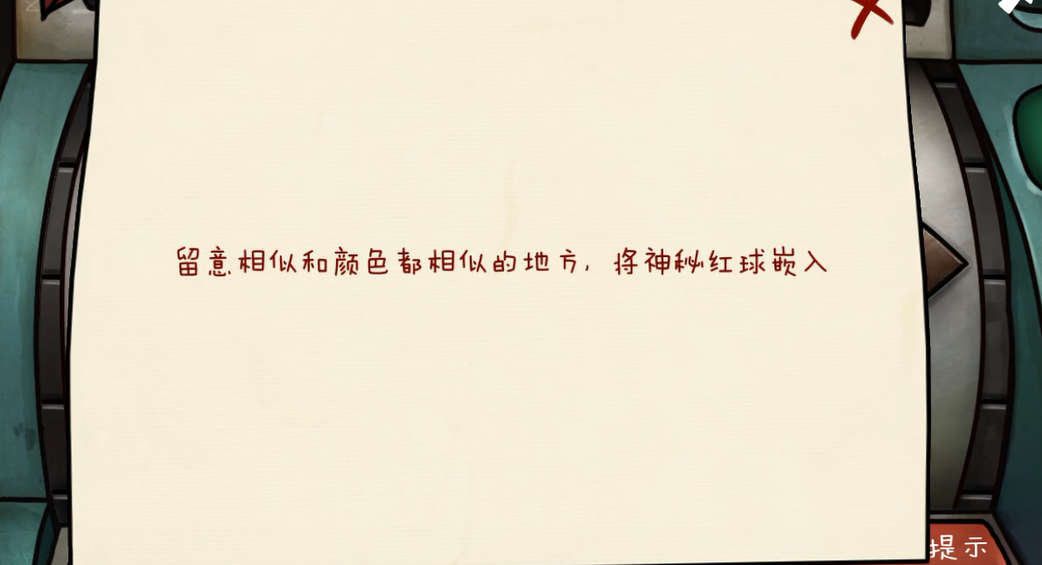 留意相似和颜色都相似的地方，将神秘红球嵌入
提示